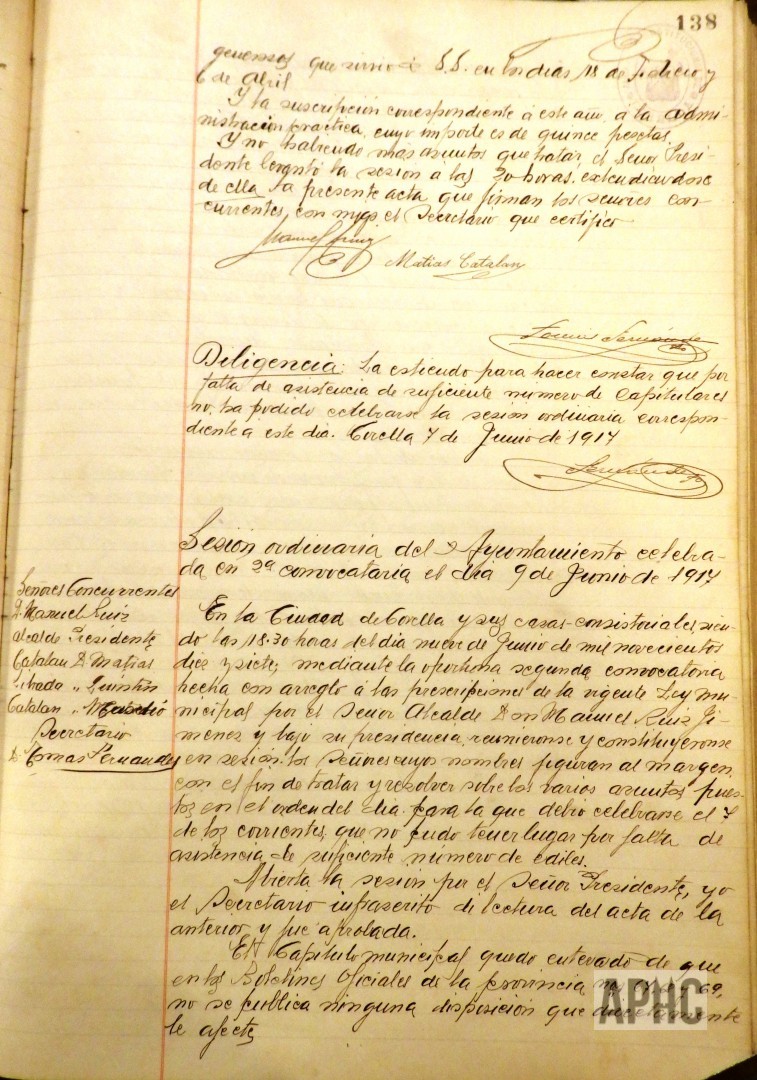 138
generosos que sirvió á S.S. en los dias 18 de Febrero y
6 de Abril
Y la suscripción correspondiente á este año, á la admi-
nistración práctica, cuyo importe es de quince pesetas.
Y no habiendo más asuntos que tratar, el Señor Presi-
dente levantó la sesión a las 20 horas. extendiendose
de ella la presente acta que firman los señores con-
currentes, con migo el Secretario que certifico
Manuel Ruiz
Matias Catalan
Tomás Fernández
Diligencia: La extiendo para hacer constar que por
falta de asistencia de suficiente número de Capitulares
no ha podido celebrarse la sesion ordinaria correspon-
diente á este dia. Corella 7 de Junio de 1917
Sesión ordinaria del Ayuntamiento celebra-
da en 2ª convocatoria el dia 9 de Junio de 1917
Señores Concurrentes
D. Manuel Ruiz
Alcalde Presidente
Catalan D. Matias
" Quintin
Catalan "
Secretario
D. Tomas Fernandez
En la Ciudad de Corella y sus casas-consistoriales, sien-
do las 18.30 horas del dia nueve de Junio de mil novecientos
diez y siete; mediante la oportuna segunda convocatoria
hecha con arreglo á las prescripciones de la vigente Ley mu-
nicipal por el Señor Alcalde Don Manuel Ruiz Ji-
menez y bajo su presidencia, reunieronse y constituyeronse
en sesion los Señores cuyo nombres figuran al margen,
con el fin de tratar y resolver sobre los varios asuntos pues-
tos en el orden del dia para la que debio celebrarse el 7
de los corrientes, que no pudo tener lugar por falta de
asistencia de suficiente número de ediles.
Abierta la sesion por el Señor Presidente, yo
el Secretario infrascrito di lectura del acta de la
anterior y fue aprobada.
El Capitulo municipal quedo enterado de que
en los Boletines Oficiales de la provincia
no se publica ninguna disposición que directamente
le afecte
APHC